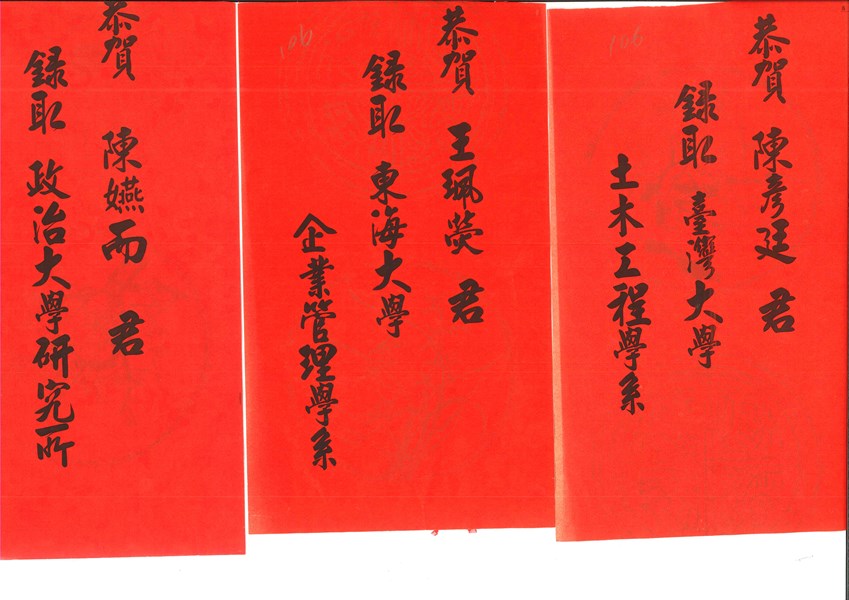 恭賀 陳彥廷 君
錄取 臺灣大學
土木工程學系
106
恭賀 王珮熒 君
錄取 東海大學
企業管理學系
106
恭賀 陳嬿而 君
錄取 政治大學研究所